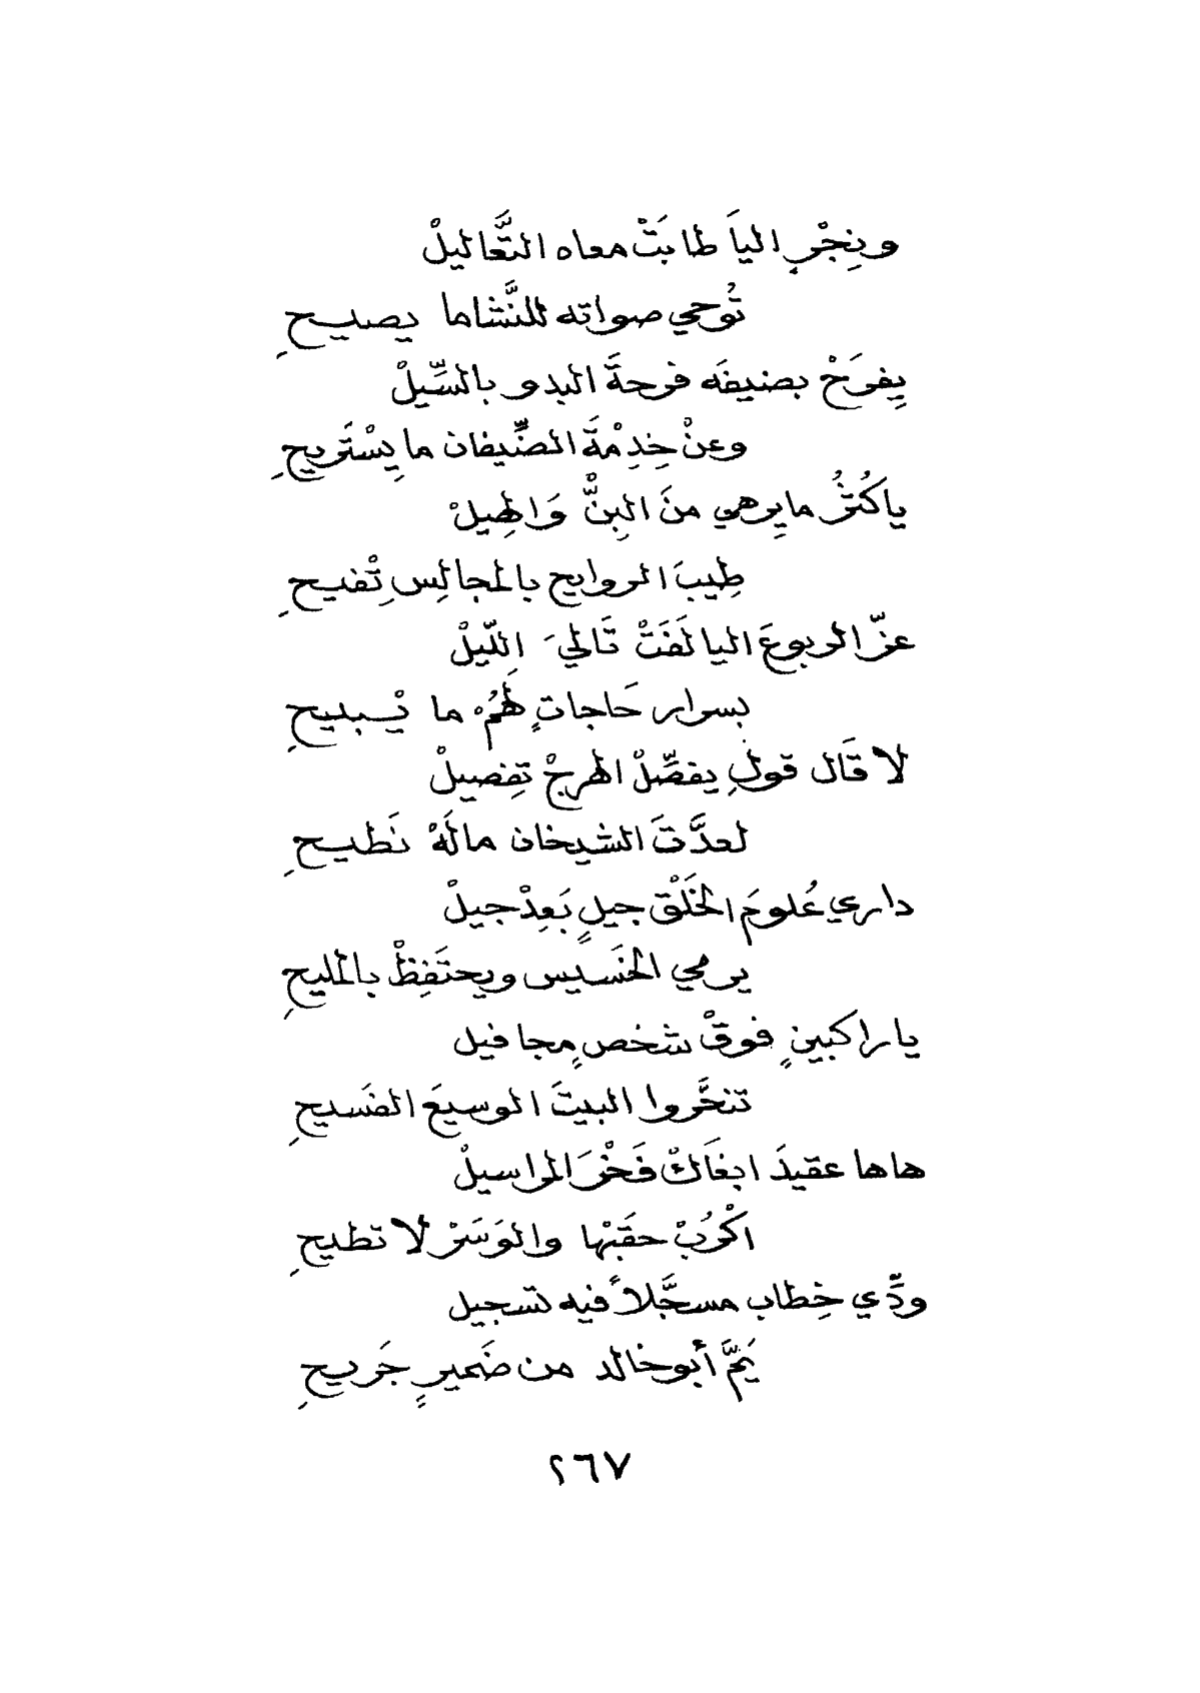 ونِجْرٍ اليَا طابَتْ معاه التَّعاليلْ
تُوحي صواته للنَّشاما يصيحِ
يِفرَحْ بضيفَه فرحةَ البدو بالسِّيلْ
وعنْ خِدِمْةَ الضِّيفان ما يِسْتَريحِ
يا كُثرُ ما يِرهي منَ البِنّْ وَالهِيلْ
طِيبَ الروايح بالمجالِس تِفْيحِ
عزّ الربوعَ اليا لَفَتْ تَاليَ اللّيلْ
بسرار حَاجاتٍ لَهُمْ ما يْبيحِ
لا قَال قولٍ يفصِّلْ الهرجْ تِفصيلْ
لعدَّتَ الشيخان مالَهْ نَطيحِ
داري عُلومَ الخَلْق جيلٍ بَعِدْ جيلْ
يرمي الخَسيس ويحتَفِظْ بالمليحِ
يا راكبينٍ فوقْ شخصٍ مجافيل
تنحَّروا البيتَ الوسيعَ الفَسيحِ
هاها عقيدَ ابغَاكْ فَخْرَ المراسيلْ
اكْرُبْ حقَبْها والوَسَرْ لا تطيحِ
ودِّي خِطاب مسجَّلاً فيه تسجيل
يَمَّ أبو خالد من ضَميرٍ جَريحِ
٢٦٧